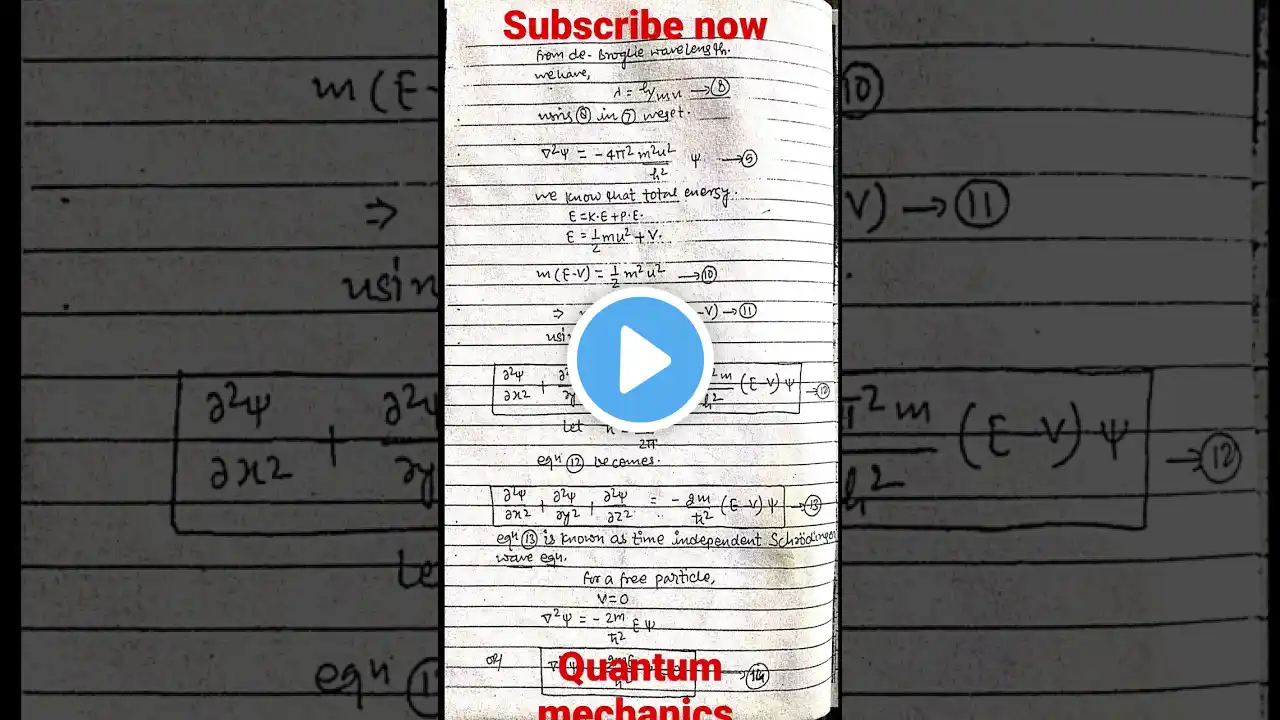 Subscribe now
from de-Broglie wavelength.
we have,
λ = h/mu → ⑧
using ⑧ in ⑦ we get.
∇²ψ = -4π² m²u²/h² ψ → ⑤
we know that total energy.
E = K.E + P.E.
E = 1/2 mu² + V.
m(E-V) = 1/2 m²u² → ⑩
⇒ -V) → ⑪
using
∂²ψ/∂x² + ∂²ψ/∂y ²m/h² (E-V) ψ → ⑫
Let 2π
eqn ⑫ becomes.
∂²ψ/∂x² + ∂²ψ/∂y² + ∂²ψ/∂z² = - 2m/ħ² (E-V) ψ → ⑬
eqn ⑬ is known as time independent Schrodinger
wave eqn.
for a free particle,
V=0
∇²ψ = - 2m/ħ² Eψ
or/
→ ⑭
Quantum
mechanics
m(E- ⑩
⇒ V) → ⑪
usin
∂²ψ/∂x² + ∂²ψ/∂y π²m/h² (E-V) ψ → ⑫
Le
eqn